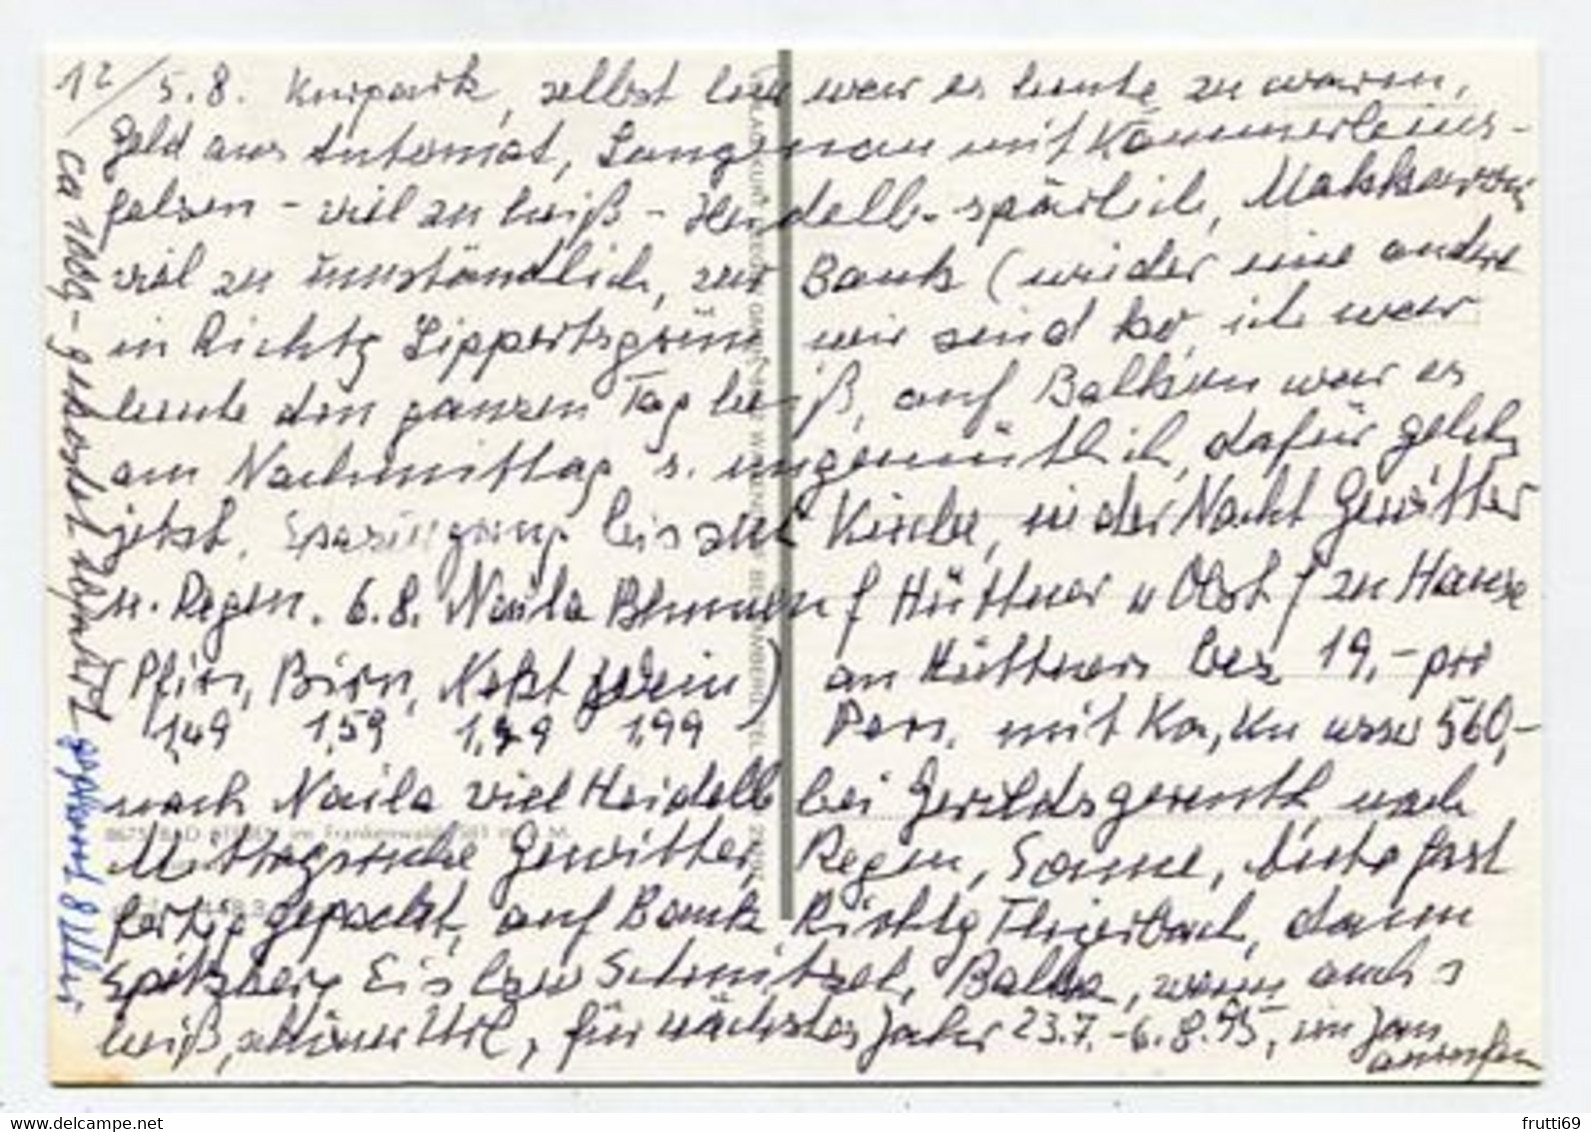 12/ 5.8. Kurpark, selbst hier war es heute zu warm,
Geld aus Automat, Langenau mit Kämmerleins-
felsen - viel zu heiß - Heidelb. spärlich, Makkaroni
viel zu umständlich, zur Bank (wieder eine andere
in Richtg Lippertsgrün wir sind ko, ich war
heute den ganzen Tag heiß, auf Balkon war es
am Nachmittag s. ungemütlich, dafür gehts
jetzt. Spaziergang bis zur Kirche, in der Nacht Gewitter
u. Regen. 6.8. Naila Blumen f Hüttner u Obst f zu Hause
(Pfirs, Birn, Nekt Wein) an Hüttners bez 19,- pro
1,49 1,59 1,99 Pers. mit Ka, Ku usw 560,-
nach Naila viel Heidelb bei Geroldsgrün nach
Mittagsruhe Gewitter, Regen, Sonne, heute fast
fertig gepackt, auf Bank Richtg Thierbach, dann
Spitzberg Eis bzw Schnitzel, Balkon, wenn auch s
heiß, schöner Url, für nächstes Jahr 23.7.-6.8.95, im Jan
anrufen
ca 100g - gekostet
8675 BAD STEBEN im Frankenwald
frutti69
delcampe.net